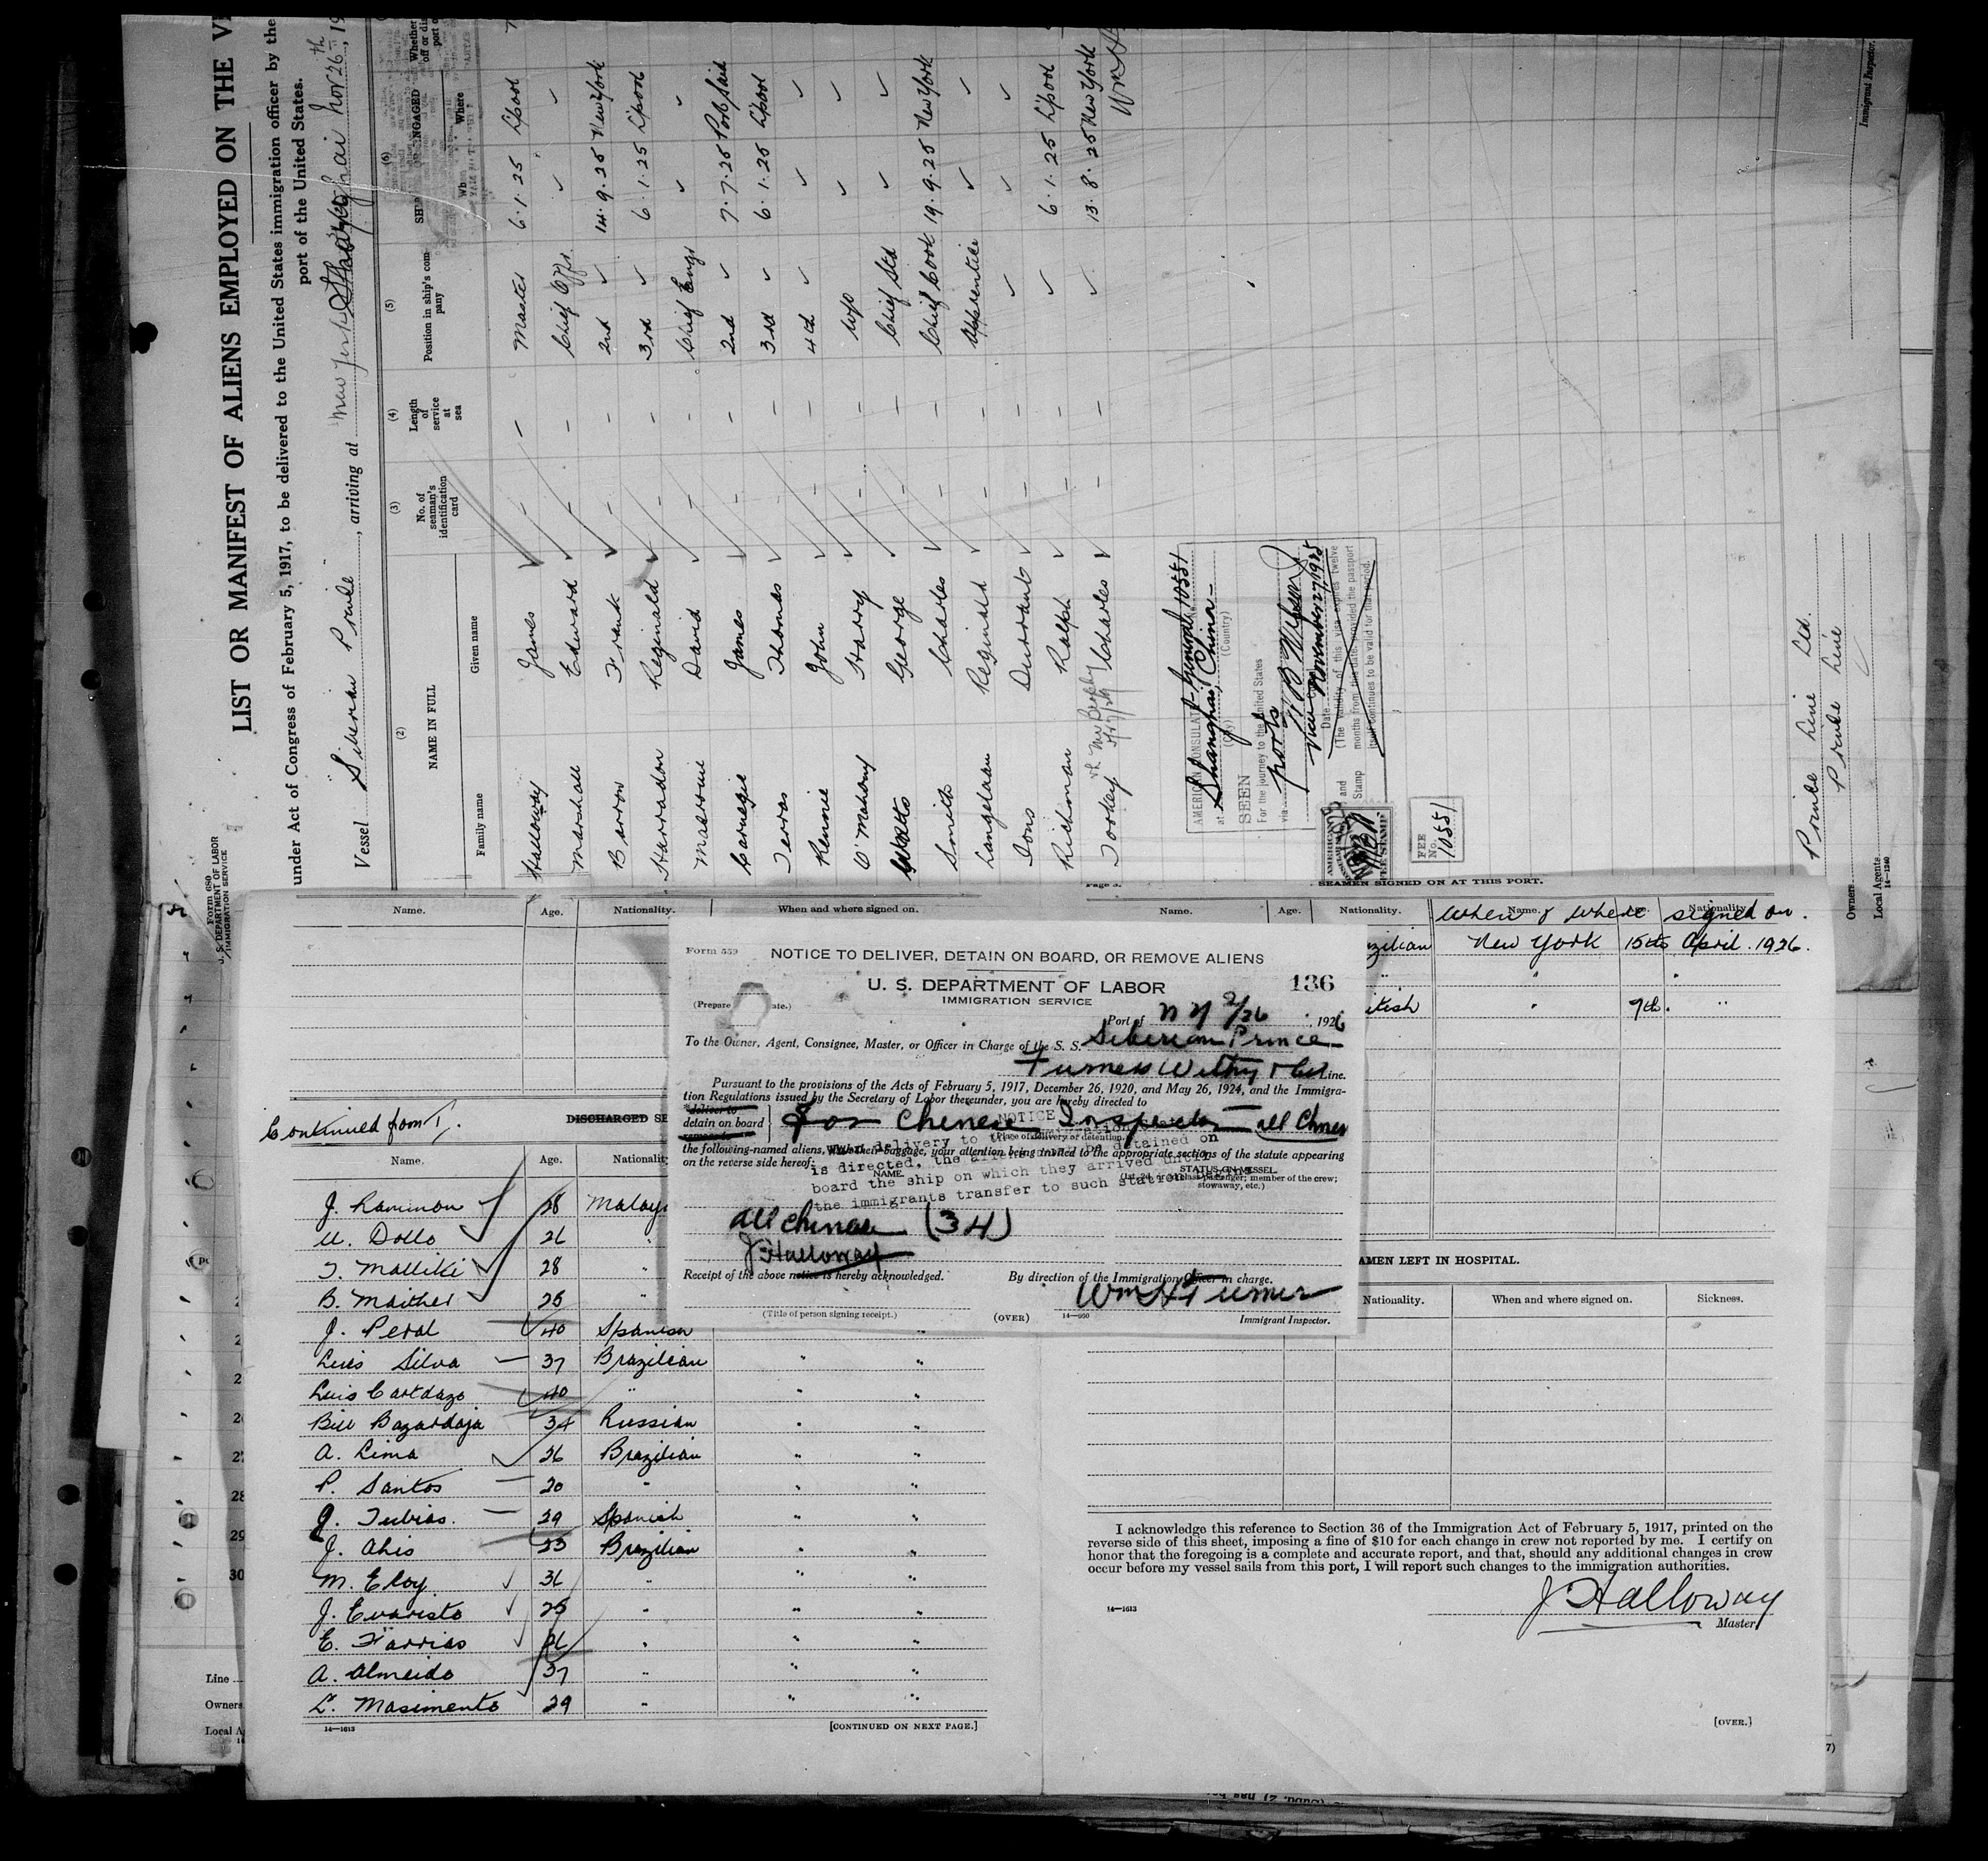 LIST OR MANIFEST OF ALIENS EMPLOYED ON THE
under Act of Congress of February 5, 1917, to be delivered to the United States immigration officer by the
port of the United States.
Vessel Siberian Prince, arriving at New York Shanghai Nov 26th, 19
Form 680
U. S. DEPARTMENT OF LABOR
IMMIGRATION SERVICE
(2) (3) (4) (5) (6)
NAME IN FULL
Family name Given name
No. of seaman's identification card
Length of service at sea
Position in ship's company
Where
Halloway James — — Master 6.1.25 L'pool
Marshall Edward — — Chief Offr ✓ ✓
Barrow Frank — — 2nd ✓ 14.9.25 New York
Harradon Reginald — — 3rd ✓ 6.1.25 L'pool
David — — Chief Engr ✓ ✓
Carnegie James — — 2nd ✓ 7.7.25 Port Said
Terras Thomas — — 3rd ✓ 6.1.25 L'pool
Rennie John — — 4th ✓ ✓ ✓
O'Mahony Harry — — W/O ✓ ✓
Watts George — — Chief Std ✓ ✓
Smith Charles — — Chief Cook 19.9.25 New York
Langelaan Reginald — — Apprentice ✓ ✓
Ions Durrant — — ✓ ✓ ✓
Richman Ralph — — ✓ 6.1.25 L'pool
Torkey Charles — — ✓ 13.8.25 New York
AMERICAN CONSULATE General 10551
at Shanghai, China
(City) (Country)
SEEN
For the journey to the United States
via ports
Vice
Date November 27, 1925
(The validity of this visa expires twelve
months from this date, provided the passport
itself continues to be valid for that period.)
and
Stamp
AMERICAN
FEE STAMP
FEE
No. 10551
Owners Prince Line Ltd.
Local Agents Prince Line
14—1240
Immigrant Inspector.
Page 3.
SEAMEN SIGNED ON AT THIS PORT.
Name. Age. Nationality. When and where signed on.
Name. Age. Nationality. Name. Nationality.
When & where signed on.
zilian New York 15th April. 1926.
" " "
itish " 9th. "
Form 559
NOTICE TO DELIVER, DETAIN ON BOARD, OR REMOVE ALIENS
U. S. DEPARTMENT OF LABOR 136
IMMIGRATION SERVICE
(Prepare ate.)
Port of N Y 2/26, 1926
To the Owner, Agent, Consignee, Master, or Officer in Charge of the S. S. Siberian Prince
Furness Withy & Co Line.
Pursuant to the provisions of the Acts of February 5, 1917, December 26, 1920, and May 26, 1924, and the Immigra-
tion Regulations issued by the Secretary of Labor thereunder, you are hereby directed to
deliver to
detain on board
remove to
For Chinese Inspector all Chinese
(Place of delivery or detention.)
the following-named aliens, with their baggage, your attention being invited to the appropriate sections of the statute appearing
on the reverse side hereof:
NOTICE
When delivery to
is directed, the aliens must be detained on
board the ship on which they arrived until
the immigrants transfer to such station
NAME STATUS ON VESSEL
passenger; member of the crew;
stowaway, etc.)
all Chinese (34)
J Halloway
Receipt of the above notice is hereby acknowledged. By direction of the Immigration Officer in charge.
Wm H Turner
(Title of person signing receipt.) (OVER) 14—950 Immigrant Inspector.
Continued from 1,
DISCHARGED SE
Name. Age. Nationalit
J. Raminon 28 Malay
U. Dollo 26 "
T. Malliki 28 "
B. Maither 25 "
J. Peral 40 Spanish "
Luis Silva 37 Brazilian " "
Luis Cartdazo 40 " " "
Bill Bazardaja 34 Russian " "
A. Lima 26 Brazilian " "
P. Santos 20 " " "
J. Tubias. 29 Spanish " "
J. Ahis 23 Brazilian " "
M. Eloy 36 " " "
J. Evaristo 25 " " "
E. Farrias 26 " " "
A. Almeido 37 " " "
L. Masimento 29 " " "
14—1613 [CONTINUED ON NEXT PAGE.]
AMEN LEFT IN HOSPITAL.
Nationality. When and where signed on. Sickness.
I acknowledge this reference to Section 36 of the Immigration Act of February 5, 1917, printed on the
reverse side of this sheet, imposing a fine of $10 for each change in crew not reported by me. I certify on
honor that the foregoing is a complete and accurate report, and that, should any additional changes in crew
occur before my vessel sails from this port, I will report such changes to the immigration authorities.
J Halloway
14—1613 Master
[OVER.]
28
29
30
Line
Owners
Local A